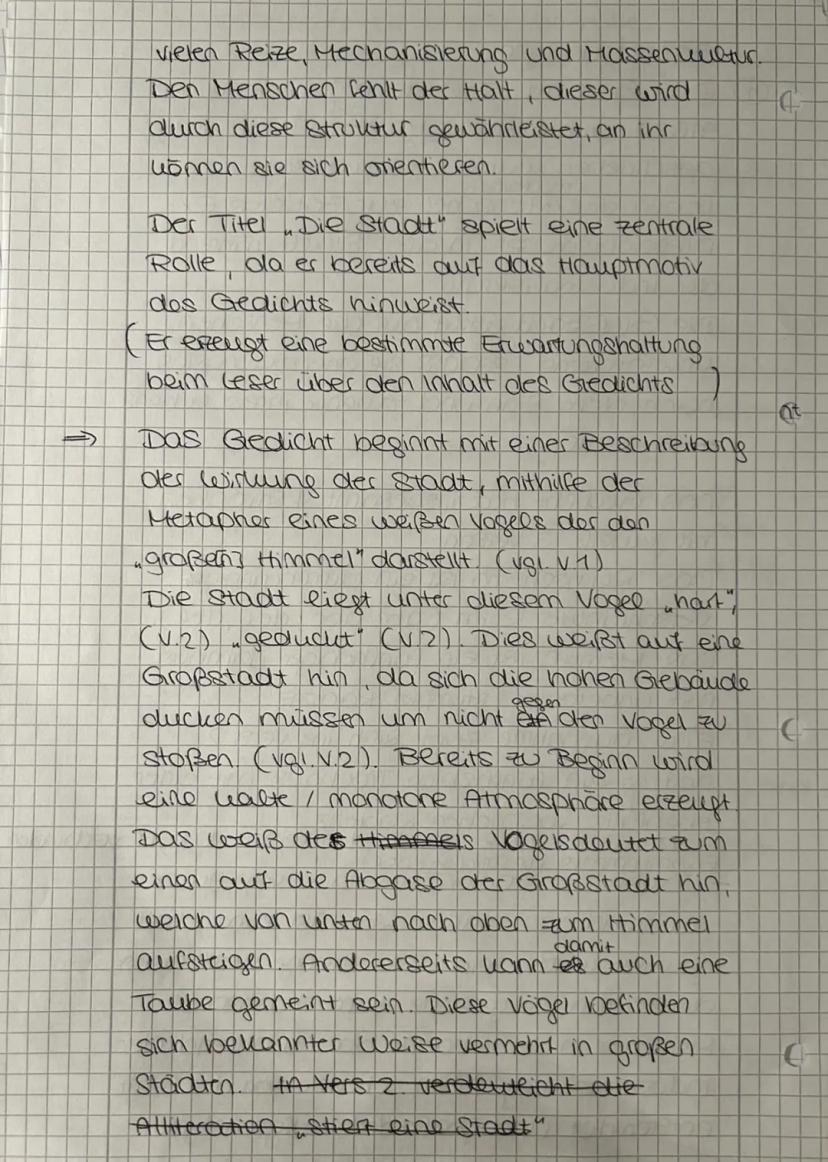 vielen Reize, Mechanisierung und Massenkultur.
Den Menschen fehlt der Halt, dieser wird
durch diese Struktur gewährleistet, an ihr
können sie sich orientieren.
Der Titel „Die Stadt" spielt eine zentrale
Rolle, da er bereits auf das Hauptmotiv
des Gedichts hinweist.
(Er erzeugt eine bestimmte Erwartungshaltung
beim Leser über den Inhalt des Gedichts )
⇒ Das Gedicht beginnt mit einer Beschreibung
der Wirkung der Stadt, mithilfe der
Metapher eines weißen Vogels der den
„große[n] Himmel" darstellt. (vgl. V.1)
Die Stadt liegt unter diesem Vogel „hart",
(V.2) „geduckt" (V.2). Dies weißt auf eine
Großstadt hin, da sich die hohen Gebäude
ducken müssen um nicht gegen den Vogel zu
stoßen. (vgl. V.2). Bereits zu Beginn wird
eine kalte / monotone Atmosphäre erzeugt.
Das weiß des Himmels Vogels deutet zum
einen auf die Abgase der Großstadt hin,
welche von unten nach oben zum Himmel
aufsteigen. Andererseits kann es damit auch eine
Taube gemeint sein. Diese Vögel befinden
sich bekannter Weise vermehrt in großen
Städten. In Vers 2 verdeutlicht die
Alliteration „stiert eine Stadt"